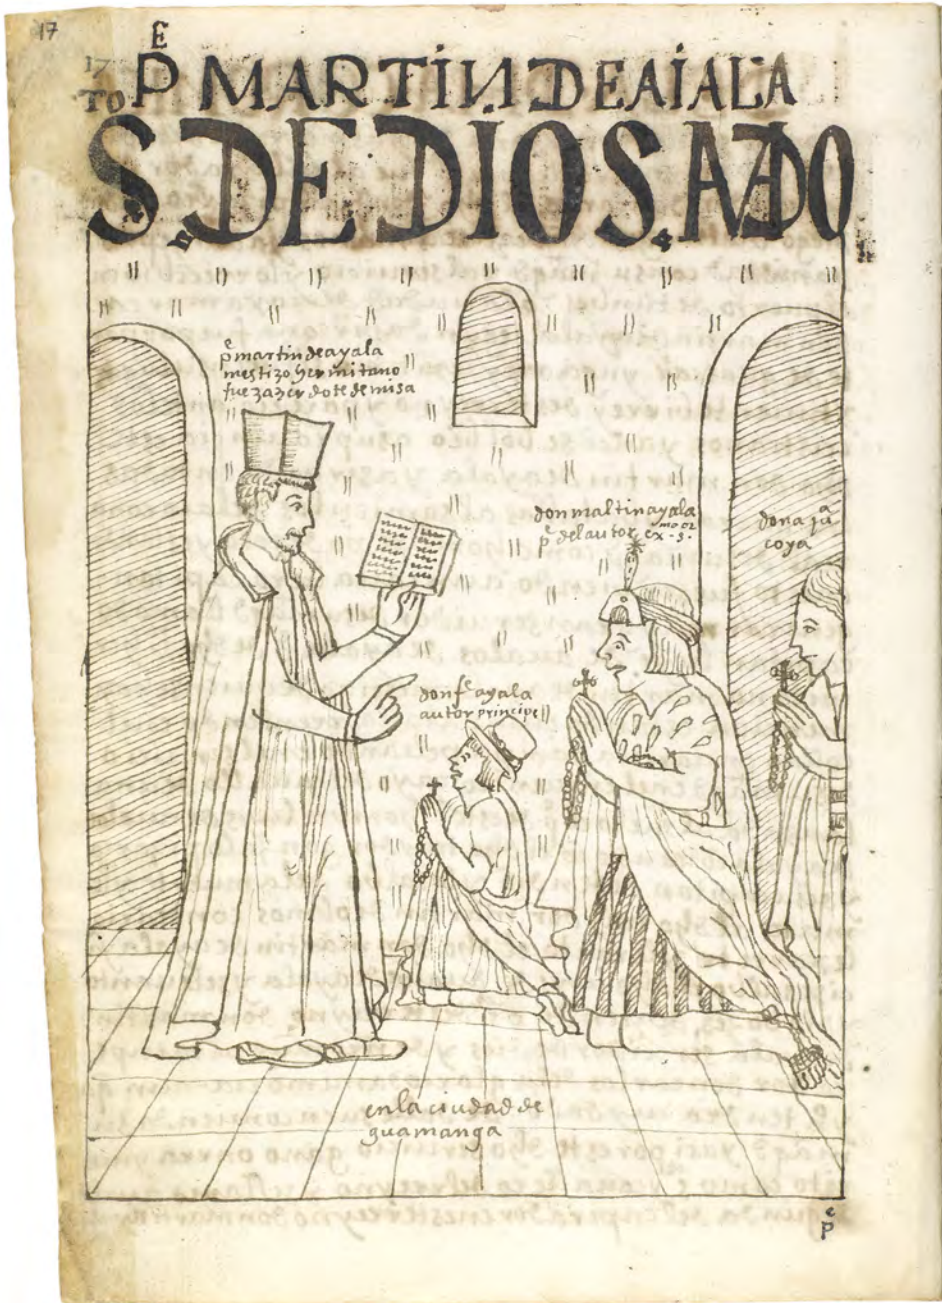 17
17
P^E MARTIN DE AIALA
TO
S. DE DIOS. AMADO
p^e martin de ayala
mestizo hermitano
fue zazerdote de misa
don maltin ayala
p^e del autor ex^mo s^or
dona ju^a
coya
don f^e ayala
autor principe
en la ciudad de
guamanga
p^e